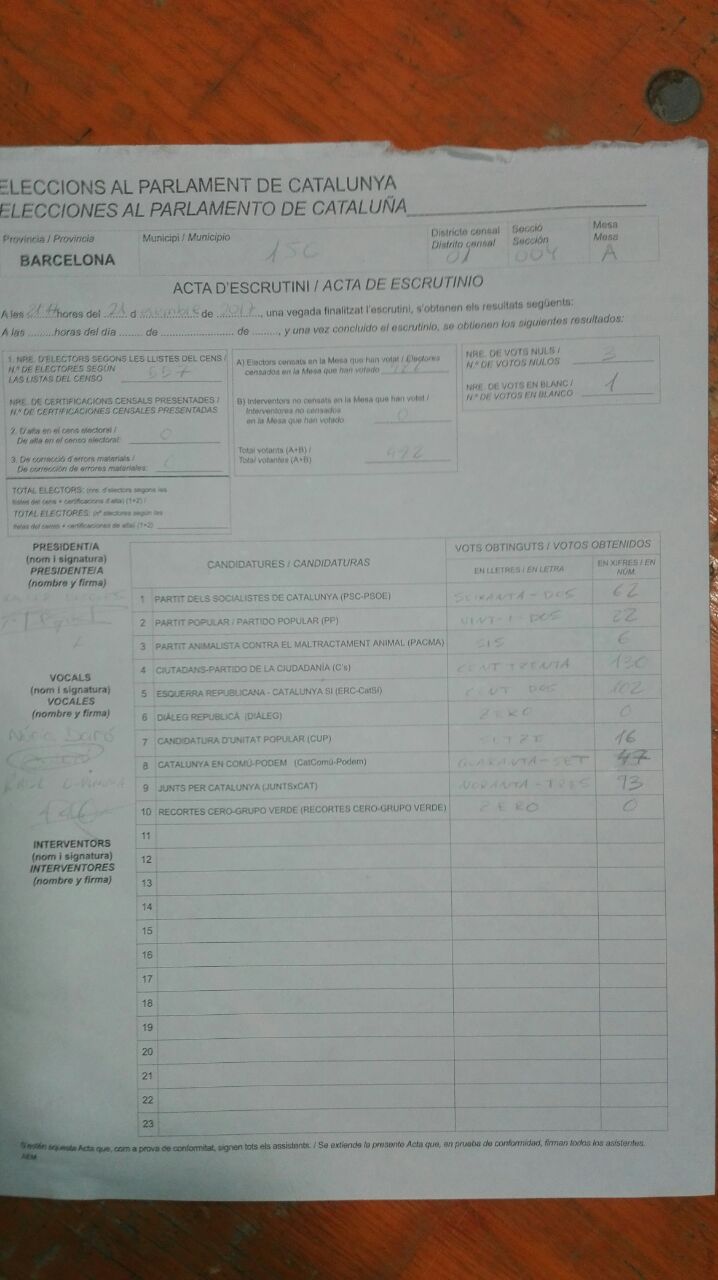 ELECCIONS AL PARLAMENT DE CATALUNYA
ELECCIONES AL PARLAMENTO DE CATALUÑA
Provincia / Provincia
BARCELONA
Municipi / Municipio
156
Districte censal
Distrito censal
01
Secció
Sección
004
Mesa
Mesa
A
ACTA D'ESCRUTINI / ACTA DE ESCRUTINIO
A les 21 H hores del 21 d esembre de 2017, una vegada finalitzat l'escrutini, s'obtenen els resultats següents:
A las ........horas del día ....... de ........................ de ........, y una vez concluido el escrutinio, se obtienen los siguientes resultados:
1. NRE. D'ELECTORS SEGONS LES LLISTES DEL CENS /
N.º DE ELECTORES SEGÚN
LAS LISTAS DEL CENSO 557
NRE. DE CERTIFICACIONS CENSALS PRESENTADES /
N.º DE CERTIFICACIONES CENSALES PRESENTADAS
2. D'alta en el cens electoral /
De alta en el censo electoral: 0
3. De correcció d'errors materials /
De corrección de errores materiales:
TOTAL ELECTORS: (nre. d'electors segons les
llistes del cens + certificacions d'alta) (1+2) /
TOTAL ELECTORES: (nº electores según las
listas del censo + certificaciones de alta) (1+2)
A) Electors censats en la Mesa que han votat / Electores
censados en la Mesa que han votado
B) Interventors no censats en la Mesa que han votat /
Interventores no censados
en la Mesa que han votado 0
Total votants (A+B) /
Total votantes (A+B) 482
NRE. DE VOTS NULS /
N.º DE VOTOS NULOS 3
NRE. DE VOTS EN BLANC /
N.º DE VOTOS EN BLANCO 1
PRESIDENT/A
(nom i signatura)
PRESIDENTE/A
(nombre y firma)
VOCALS
(nom i signatura)
VOCALES
(nombre y firma)
Núria
INTERVENTORS
(nom i signatura)
INTERVENTORES
(nombre y firma)
CANDIDATURES / CANDIDATURAS
VOTS OBTINGUTS / VOTOS OBTENIDOS
EN LLETRES / EN LETRA
EN XIFRES / EN NÚM.
1 PARTIT DELS SOCIALISTES DE CATALUNYA (PSC-PSOE) SEIXANTA-DOS 62
2 PARTIT POPULAR / PARTIDO POPULAR (PP) VINT-I-DOS 22
3 PARTIT ANIMALISTA CONTRA EL MALTRACTAMENT ANIMAL (PACMA) SIS 6
4 CIUTADANS-PARTIDO DE LA CIUDADANÍA (C's) CENT TRENTA 130
5 ESQUERRA REPUBLICANA - CATALUNYA SÍ (ERC-CatSí) CENT DOS 102
6 DIÀLEG REPUBLICÀ (DIÀLEG) ZERO 0
7 CANDIDATURA D'UNITAT POPULAR (CUP) SETZE 16
8 CATALUNYA EN COMÚ-PODEM (CatComú-Podem) QUARANTA-SET 47
9 JUNTS PER CATALUNYA (JUNTSxCAT) NORANTA-TRES 93
10 RECORTES CERO-GRUPO VERDE (RECORTES CERO-GRUPO VERDE) ZERO 0
11
12
13
14
15
16
17
18
19
20
21
22
23
S'estén aquesta Acta que, com a prova de conformitat, signen tots els assistents. / Se extiende la presente Acta que, en prueba de conformidad, firman todos los asistentes.